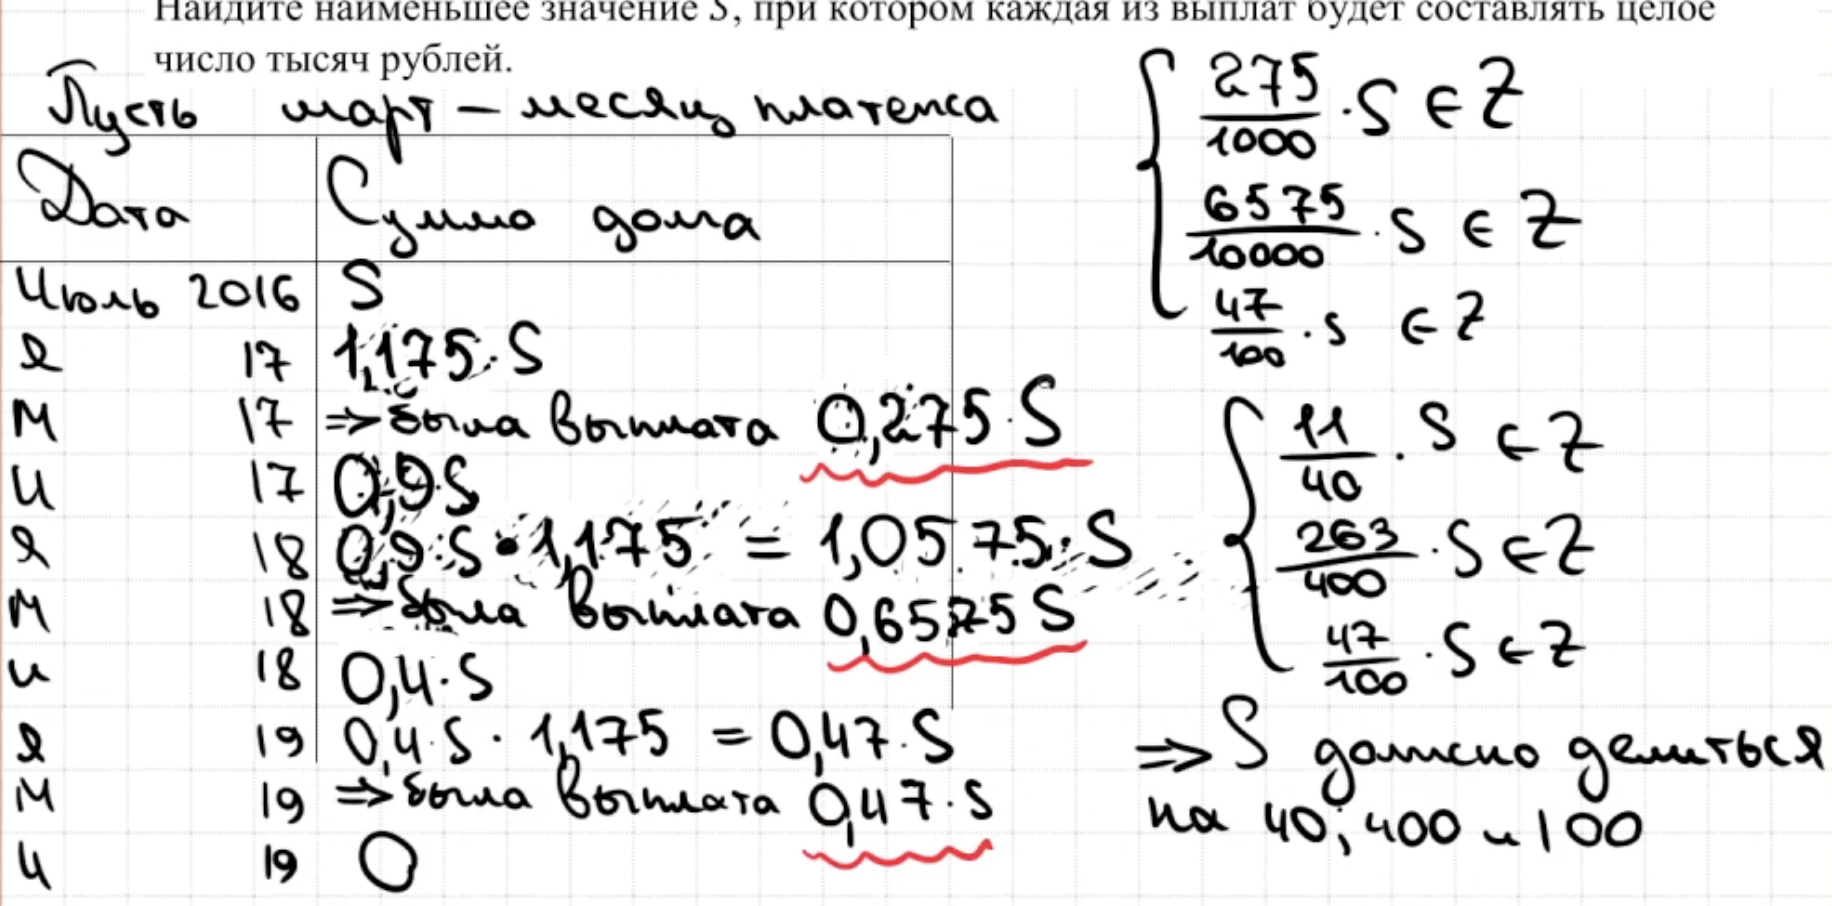 Найдите наименьшее значение S, при котором каждая из выплат будет составлять целое
число тысяч рублей.
Пусть март – месяц платежа
Дата Сумма долга
Июль 2016 S
Я 17 1,175·S
М 17 => была выплата 0,275·S
И 17 0,9S
Я 18 0,9·S·1,175 = 1,0575·S
М 18 => была выплата 0,6575S
И 18 0,4·S
Я 19 0,4·S·1,175 = 0,47·S
М 19 => была выплата 0,47·S
И 19 0
275/1000 · S ∈ Z
6575/10000 · S ∈ Z
47/100 · S ∈ Z
11/40 · S ∈ Z
263/400 · S ∈ Z
47/100 · S ∈ Z
=> S должно делиться
на 40; 400 и 100